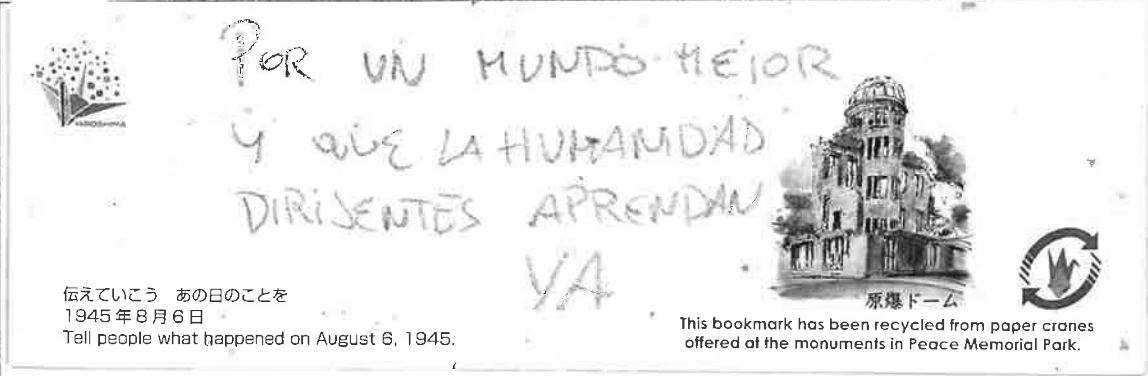 POR UN MUNDO MEJOR
Y QUE LA HUMANIDAD
DIRIJENTES APRENDAN
YA
HIROSHIMA
原爆ドーム
伝えていこう あの日のことを
1945年8月6日
Tell people what happened on August 6, 1945.
This bookmark has been recycled from paper cranes
offered at the monuments in Peace Memorial Park.